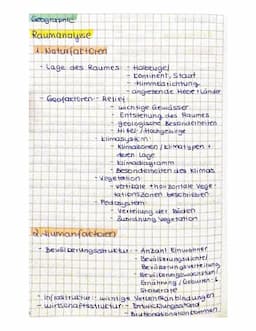 Geographie
Raumanalyse
1. Naturfaktoren
- Lage des Raumes: - Halbkugel
- Kontinent, Staat
- Himmelsrichtung
- angrenzende Meere/Länder
- Geofaktoren: - Relief:
- wichtige Gewässer
- Entstehung des Raumes
- geologische Besonderheiten
- Mittel-/Hochgebirge
- Klimasystem:
- Klimazonen/Klimatypen +
deren Lage
- Klimadiagramm
- Besonderheiten des Klimas
- Vegetation:
- vertikale + horizontale Vege-
tationszonen beschreiben
- Pedosystem:
- Verteilung der Böden
- Zuordnung Vegetation
2. Humanfaktoren
- Bevölkerungsstruktur: - Anzahl Einwohner
- Bevölkerungsdichte/
Bevölkerungsverteilung
- Bevölkerungswachstum/
Ernährung/Geburten- &
Sterberate
- Infrastruktur: wichtige Verkehrsanbindungen
- Wirtschaftsstruktur: - Entwicklungsstand
- Bruttonationaleinkommen